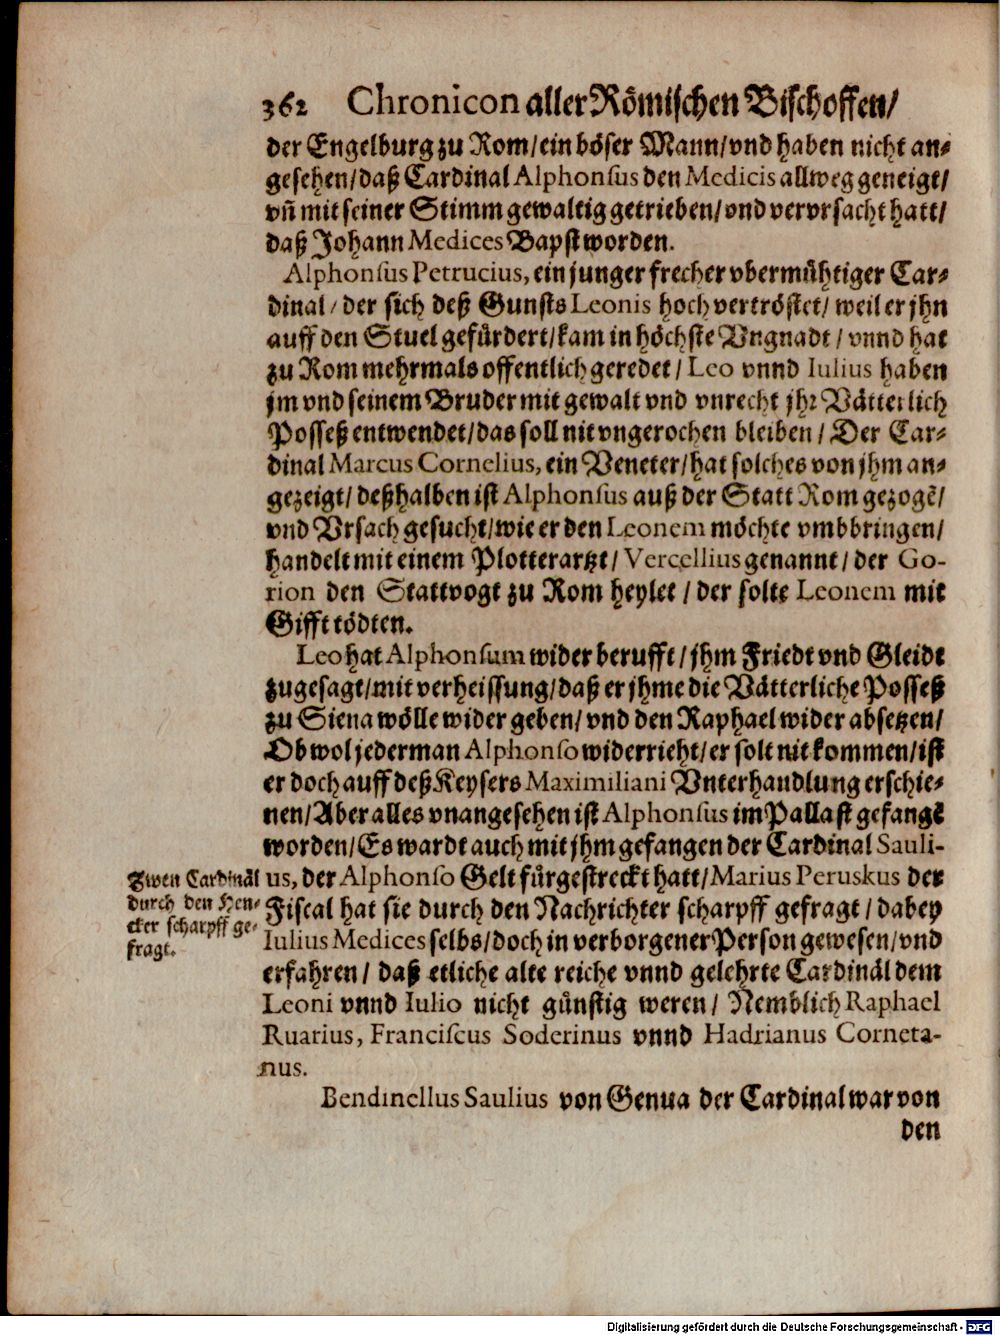 362 Chronicon aller Römischen Bischoffen/
der Engelburg zu Rom/ein böser Mann/vnd haben nicht an-
gesehen/daß Cardinal Alphonsus den Medicis allweg geneigt/
vñ mit seiner Stimm gewaltig getrieben/vnd vervrsacht hatt/
daß Johann Medices Bapst worden.
Alphonsus Petrucius, ein junger frecher vbermühtiger Car-
dinal/der sich deß Gunsts Leonis hoch vertröstet/weil er jhn
auff den Stuel gefürdert/kam in höchste Vngnadt/vnnd hat
zu Rom mehrmals offentlich geredet/Leo vnnd Iulius haben
jm vnd seinem Bruder mit gewalt vnd vnrecht jhr Vätterlich
Posseß entwendet/das soll nit vngerochen bleiben/Der Car-
dinal Marcus Cornelius, ein Veneter/hat solches von jhm an-
gezeigt/deßhalben ist Alphonsus auß der Statt Rom gezogē/
vnd Vrsach gesucht/wie er den Leonem möchte vmbbringen/
handelt mit einem Plotterartzt/Vercellius genannt/der Go-
rion den Stattvogt zu Rom heylet/der solte Leonem mit
Gifft tödten.
Leo hat Alphonsum wider berufft/jhm Friedt vnd Gleidt
zugesagt/mit verheissung/daß er jhme die Vätterliche Posseß
zu Siena wölle wider geben/vnd den Raphael wider absetzen/
Ob wol jederman Alphonso widerrieht/er solt nit kommen/ist
er doch auff deß Keysers Maximiliani Vnterhandlung erschie-
nen/Aber alles vnangesehen ist Alphonsus im Pallast gefangē
worden/Es wardt auch mit jhm gefangen der Cardinal Sauli-
us, der Alphonso Gelt fürgestreckt hatt/Marius Peruskus der
Fiscal hat sie durch den Nachrichter scharpff gefragt/dabey
Iulius Medices selbs/doch in verborgener Person gewesen/vnd
erfahren/daß etliche alte reiche vnnd gelehrte Cardinäl dem
Leoni vnnd Iulio nicht günstig weren/Nemblich Raphael
Ruarius, Franciscus Soderinus vnnd Hadrianus Corneta-
nus.
Zwen Cardinäl
durch den Hen-
cker scharpff ge-
fragt.
Bendinellus Saulius von Genua der Cardinal war von
den
Digitalisierung gefördert durch die Deutsche Forschungsgemeinschaft - DFG